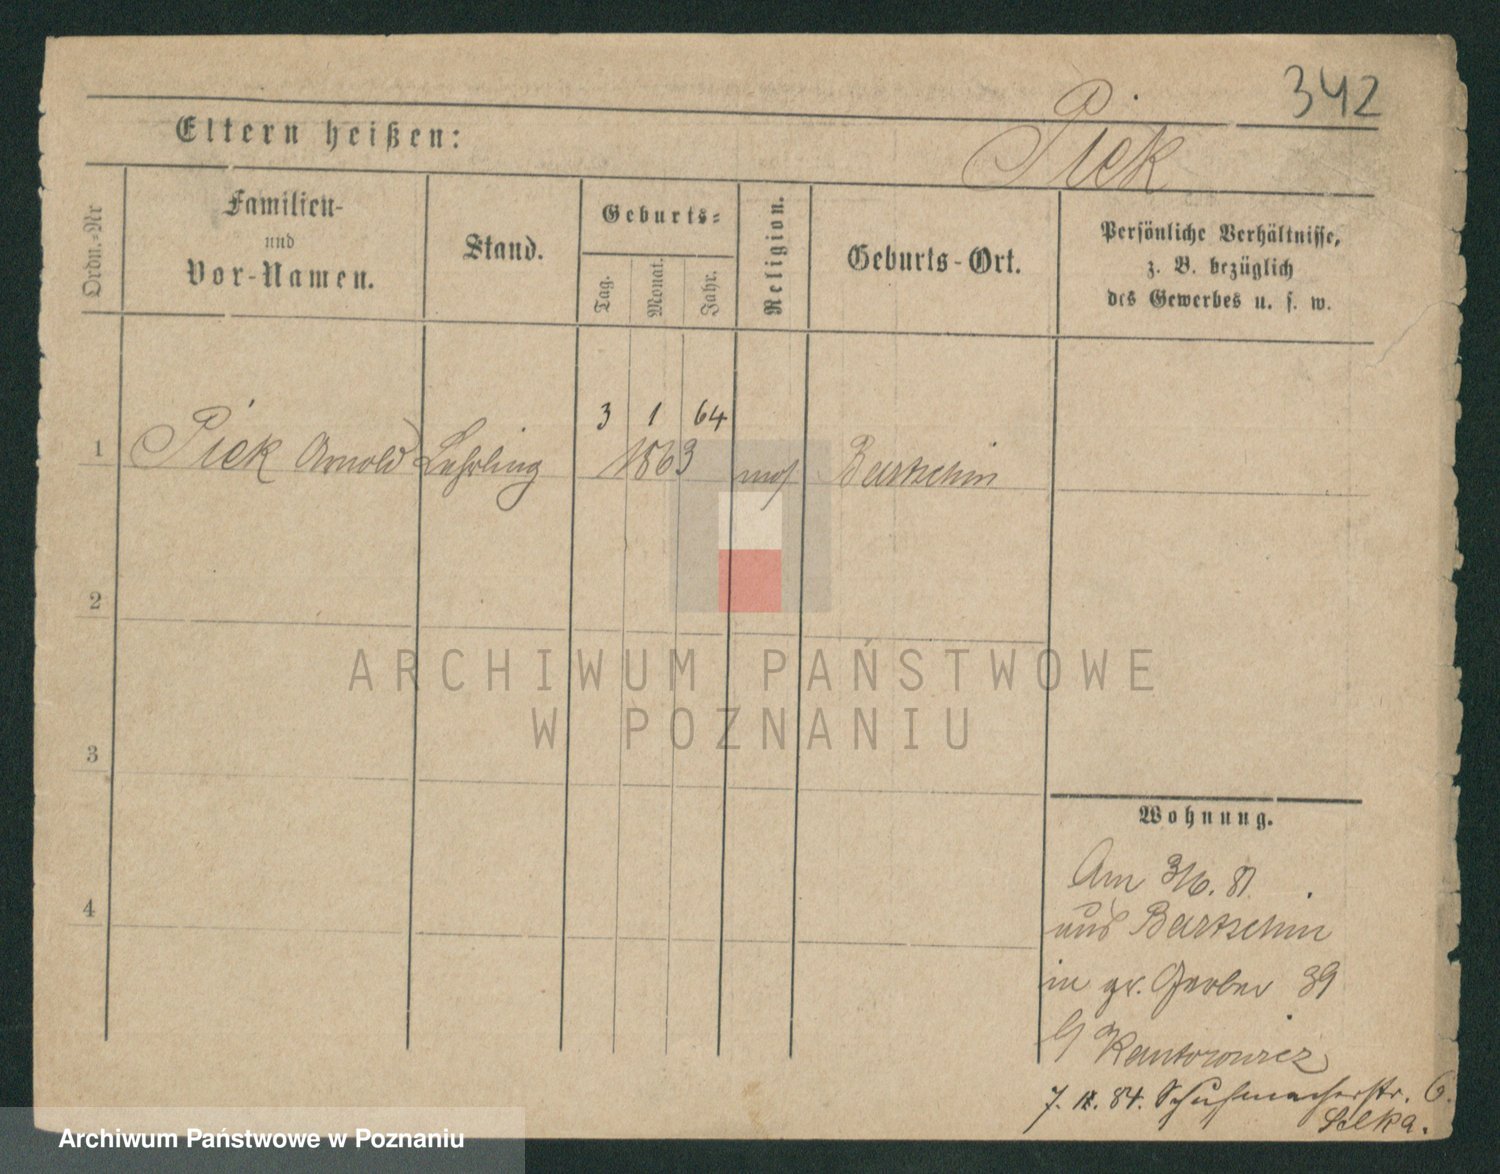 342
Eltern heißen:
Piek
Ordn.-Nr
Familien-
und
Vor-Namen.
Stand.
Geburts-
Tag.
Monat.
Jahr.
Religion.
Geburts-Ort.
Persönliche Verhältnisse,
z. B. bezüglich
des Gewerbes u. s. w.
3 1 64
1 Piek Arnold Lehrling 1863 mos Bartschin
2
3
4
ARCHIWUM PAŃSTWOWE
W POZNANIU
Wohnung.
Am 3/6. 81.
aus Bartschin
in gr. Gerber 39
Kantorowicz
7. 84. Schuhmacherstr. 6.
Selka.
Archiwum Państwowe w Poznaniu